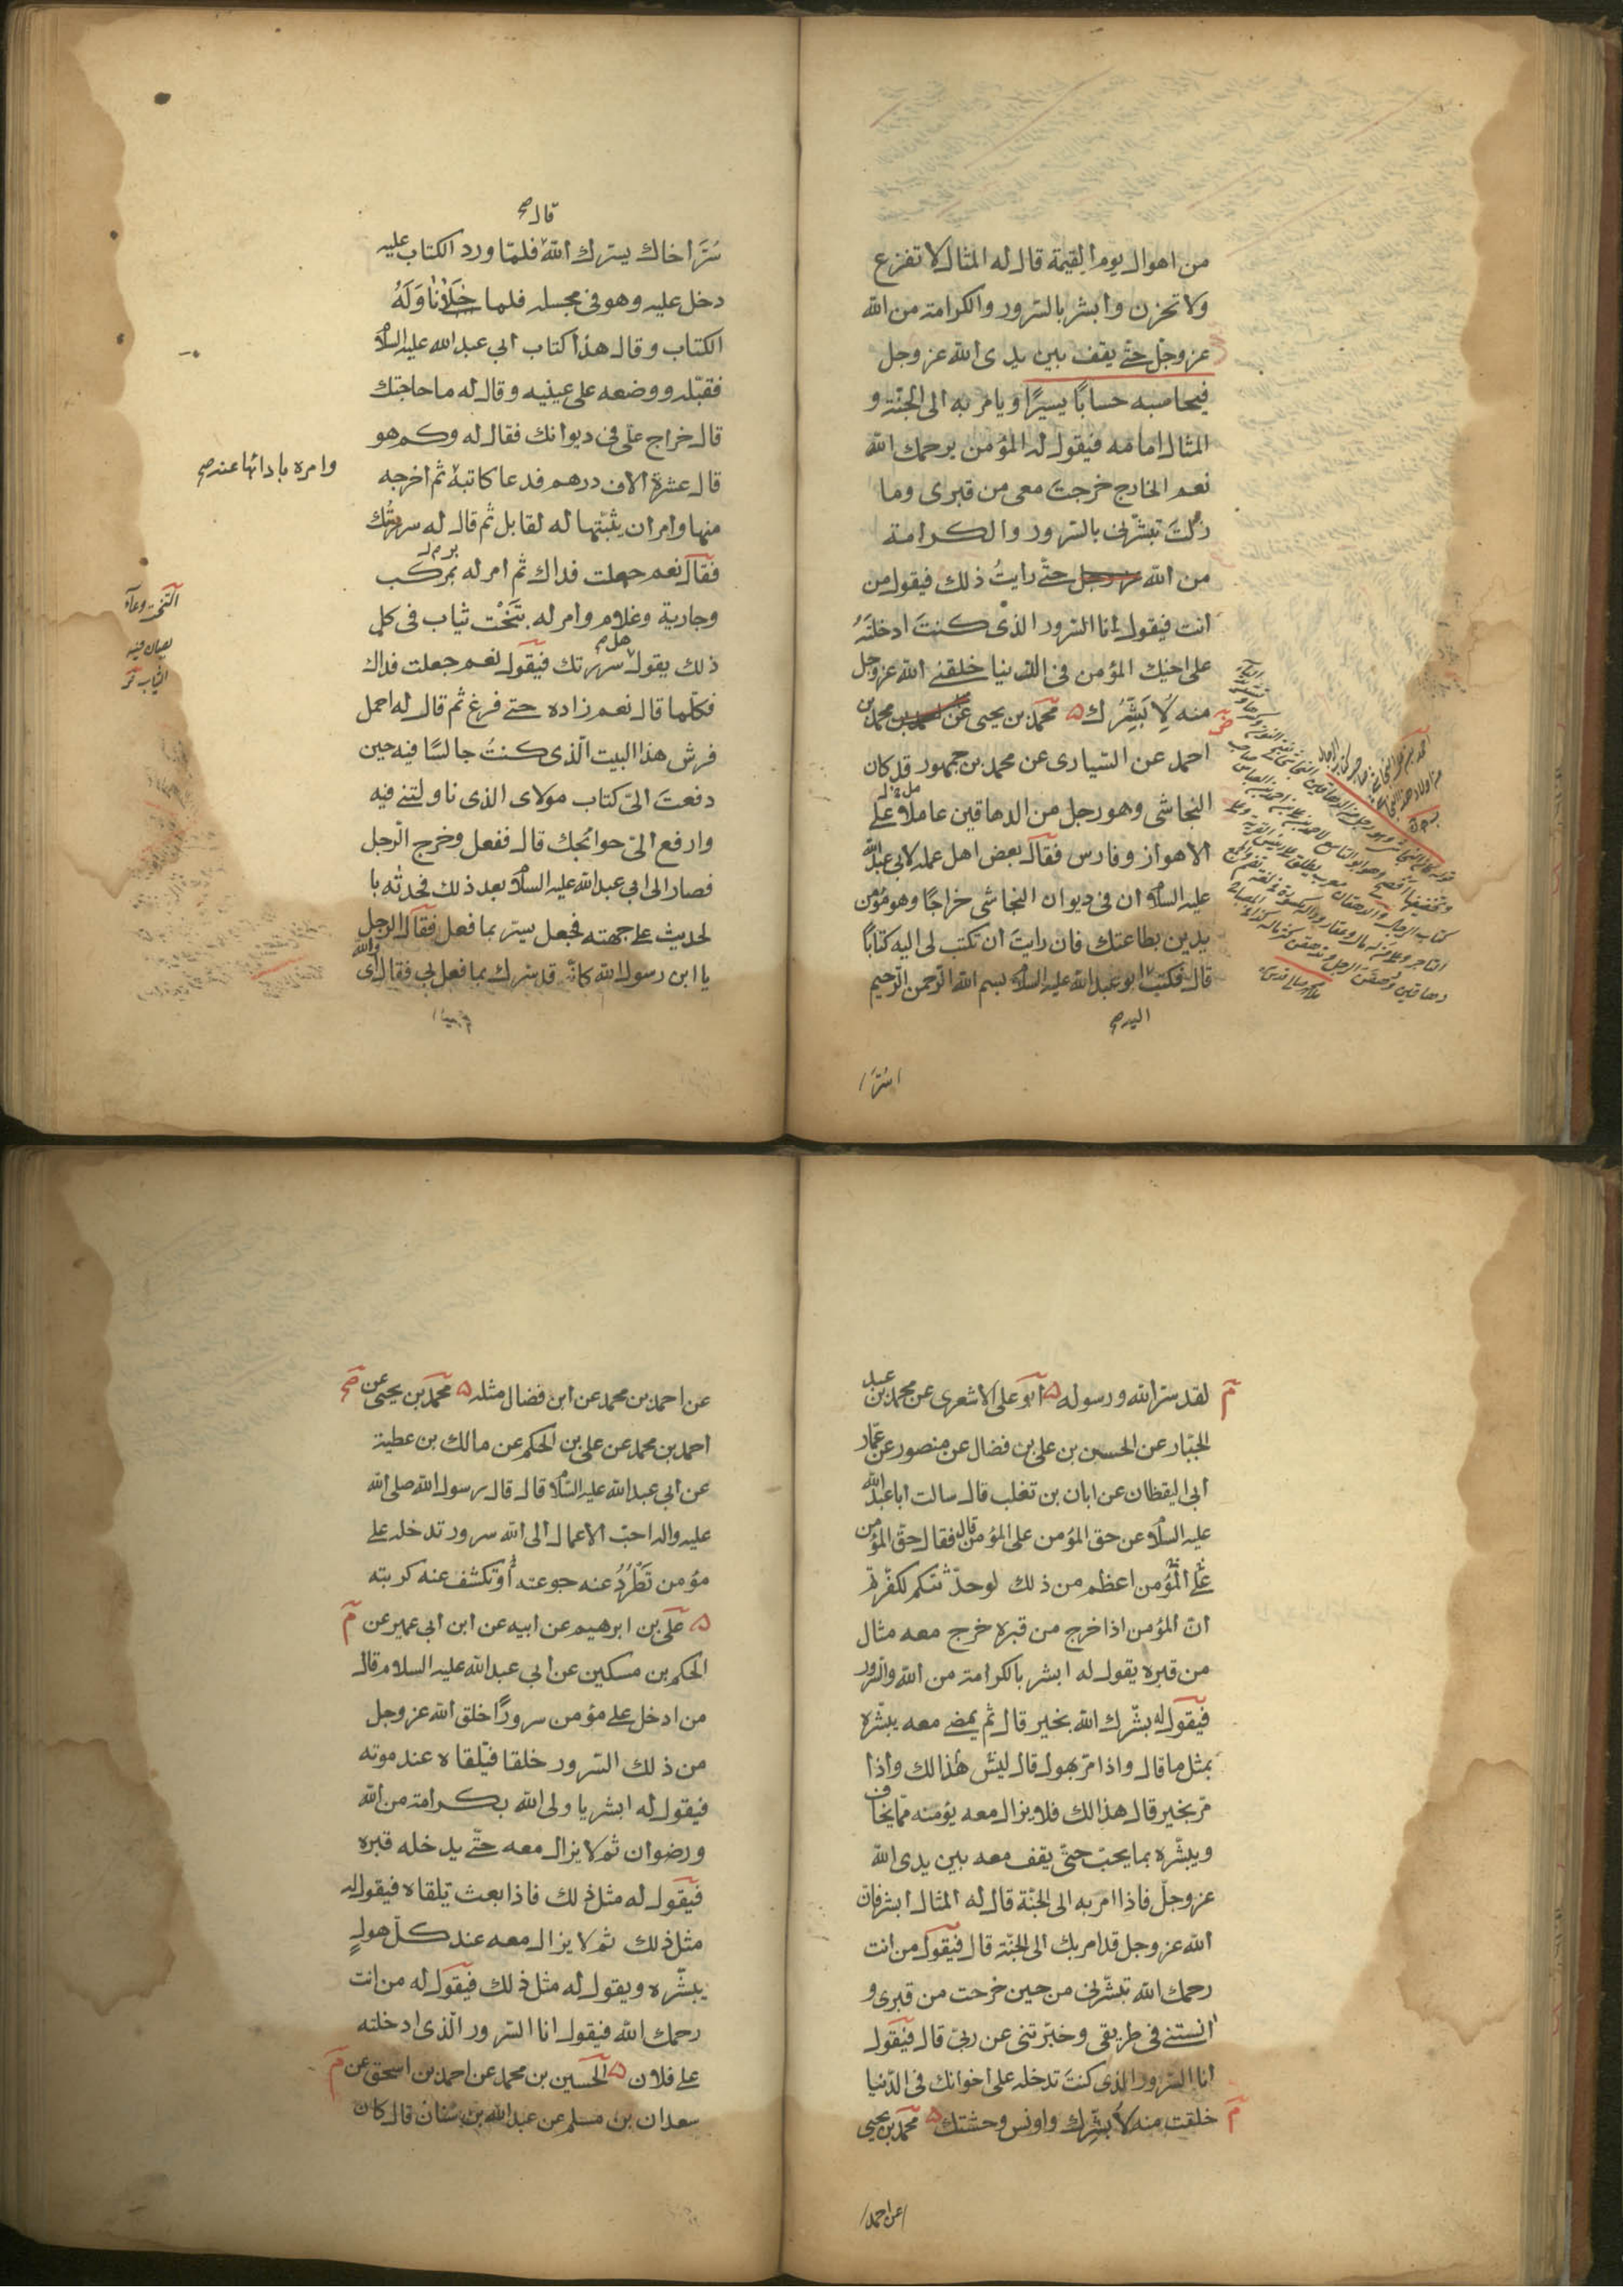 من اهوال يوم القيمة قال له المثال لا تفزع
ولا تحزن وابشر بالسّرور والكرامة من الله
عز وجلّ حتّى يقف بين يدى الله عز وجل
فيحاسبه حسابًا يسيرًا ويامر به الى الجنّة و
المثال امامه فيقول له المؤمن يرحمك الله
نعم الخارج خرجت معى من قبرى وما
زلت تبشّرنى بالسّرور والكرامة
من الله عز وجل حتّى رايتُ ذلك فيقول من
انت فيقول انا السّرور الذى كنتَ ادخلتَهُ
على اخيك المؤمن فى الدّنيا خلقنى الله عز وجل
منه لِاُبَشِّرك ۵ محمّد بن يحيى عن محمد بن
احمد عن السّيارى عن محمد بن جمهور قال كان
النجاشى وهو رجل من الدهاقين عاملا على
الاهواز وفارس فقال بعض اهل عمله لابى عبد الله
عليه السلام ان فى ديوان النجاشى خراجًا وهو مؤمن
يدين بطاعتك فان رايتَ ان تكتب لى اليه كتابًا
قال فكتب ابو عبد الله عليه السلام بسم الله الرّحمن الرّحيم
اليه صح
سُرَّ
قال صح
سُرَّ اخاك يسرك الله فلمّا ورد الكتاب عليه
دخل عليه وهو فى مجلسه فلما خلا ناوَلَهُ
الكتاب وقال هذا كتاب ابى عبد الله عليه السلام
فقبّله ووضعه على عينيه وقال له ما حاجتك
قال خراج علىّ فى ديوانك فقال له وكم هو
قال عشرة الاف درهم فدعا كاتبه ثم اخرجه
وامره بادائها عنه صح
منها وامر ان يثبّتها له لقابل ثم قال له سررتك
فقال نعم جعلت فداك ثم امر له بمركب
وجارية وغلام وامر له بتَخْت ثياب فى كل
التخت وعاء
يصان فيه
الثياب
ذلك يقول هل سررتك فيقول نعم جعلت فداك
فكلّما قال نعم زاده حتى فرغ ثم قال له احمل
فرش هذا البيت الّذى كنتُ جالسًا فيه حين
دفعتَ الىّ كتاب مولاى الذى ناولتنى فيه
وارفع الىّ حوائجك قال ففعل وخرج الرّجل
فصار الى ابى عبد الله عليه السلام بعد ذلك فحدثه با
لحديث على جهته فجعل يسرّ بما فعل فقال الرجل
يا ابن رسول الله كانّه قد سرك بما فعل بى فقال اى والله
لقد سرّ الله ورسوله ۵ ابو على الاشعرى عن محمد بن عبد
الجبّار عن الحسن بن على بن فضال عن منصور عن عمّار
ابى اليقظان عن ابان بن تغلب قال سالت ابا عبد الله
عليه السلام عن حق المؤمن على المؤمن قال فقال حقّ المؤمن
على المؤمن اعظم من ذلك لو حدّثتكم لكفرتم
انّ المؤمن اذا خرج من قبره خرج معه مثال
من قبره يقول له ابشر بالكرامة من الله والسّرور
فيقول له بشّرك الله بخير قال ثم يمضى معه يبشّره
بمثل ما قال واذا مرّ بهول قال ليس هذا لك واذا
مرّ بخير قال هذا لك فلا يزال معه يؤمنه ممّا يخاف
ويبشّره بما يحبّ حتّى يقف معه بين يدى الله
عز وجلّ فاذا امر به الى الجنّة قال له المثال ابشر فانّ
الله عز وجل قد امر بك الى الجنّة قال فيقول من انت
رحمك الله تبشّرنى من حين خرجت من قبرى و
انستنى فى طريقى وخبّرتنى عن ربّى قال فيقول
انا السّرور الذى كنتَ تدخله على اخوانك فى الدّنيا
خلقت منه لاُبشّرك واونس وحشتك ۵ محمّد بن يحيى
عن احمد
عن احمد بن محمد عن ابن فضال مثله ۵ محمّد بن يحيى عن
احمد بن محمد عن على بن الحكم عن مالك بن عطية
عن ابى عبد الله عليه السّلام قال قال رسول الله صلى الله
عليه واله احبّ الاعمال الى الله سرور تدخله على
مؤمن تَطْرُدُ عنه جوعته او تكشف عنه كربته
۵ علىّ بن ابرهيم عن ابيه عن ابن ابى عمير عن
الحكم بن مسكين عن ابى عبد الله عليه السلام قال
من ادخل على مؤمن سرورًا خلق الله عز وجل
من ذلك السّرور خلقا فيلقاه عند موته
فيقول له ابشر يا ولى الله بكرامة من الله
ورضوان ثم لا يزال معه حتّى يدخله قبره
فيقول له مثل ذلك فاذا بعث تلقاه فيقول له
مثل ذلك ثم لا يزال معه عند كلّ هولٍ
يبشّره ويقول له مثل ذلك فيقول له من انت
رحمك الله فيقول انا السّرور الّذى ادخلته
على فلان ۵ الحسين بن محمد عن احمد بن اسحق عن
سعدان بن مسلم عن عبد الله بن سنان قال كان